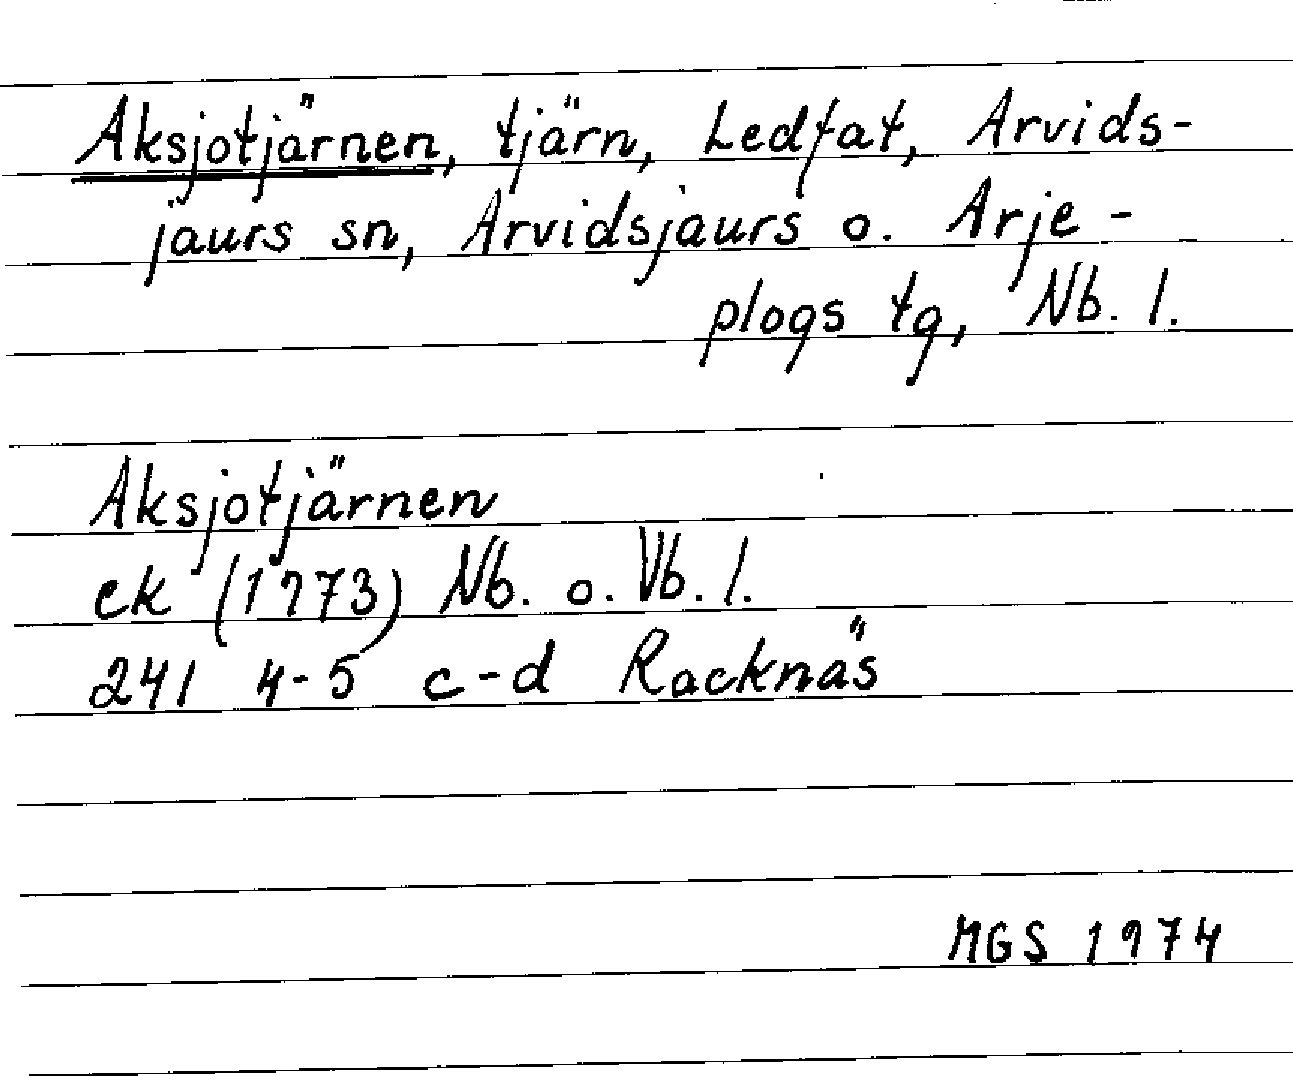 Aksjotjärnen, tjärn, Ledfat, Arvids-
jaurs sn, Arvidsjaurs o. Arje-
plogs tg, Nb. l.
Aksjotjärnen
ek (1973) Nb. o. Vb. l.
241 4-5 c-d Racknäs
MGS 1974